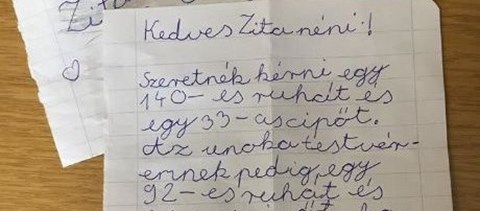 Zita
Kedves Zita néni!
Szeretnék kérni egy
140-es ruhát és
egy 33-as cipőt.
Az unokatestvér-
emnek pedig, egy
92-es ruhát és